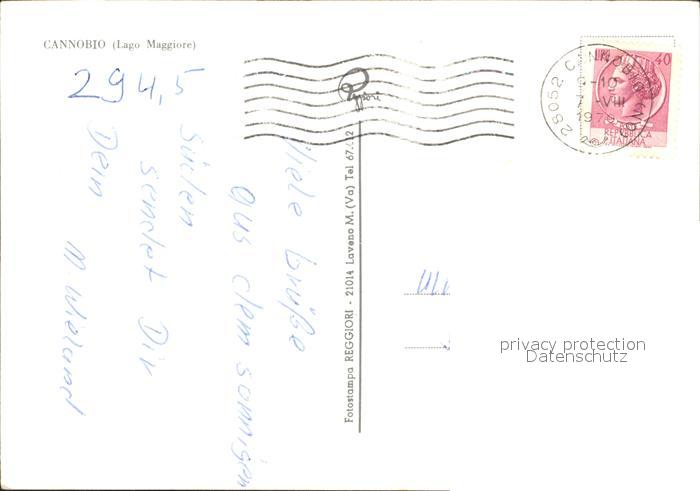 CANNOBIO (Lago Maggiore)
294,5
Viele Grüße
aus dem sonnigen
Süden
sendet Dir
Dein M. Wieland
Fotostampa REGGIORI - 21014 Laveno M. (Va) Tel 67.
Reggiori
28052 CANNOBIO
-10
-VIII
197
40
REPUBBLICA
ITALIANA
privacy protection
Datenschutz